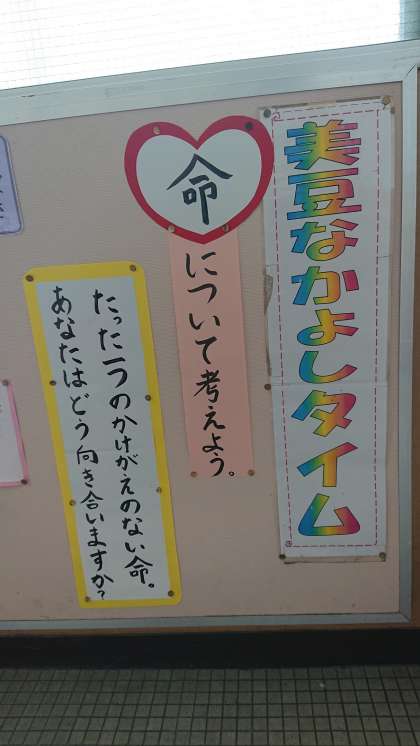 美豆なかよしタイム
命
について考えよう。
たった一つのかけがえのない命。
あなたはどう向き合いますか?